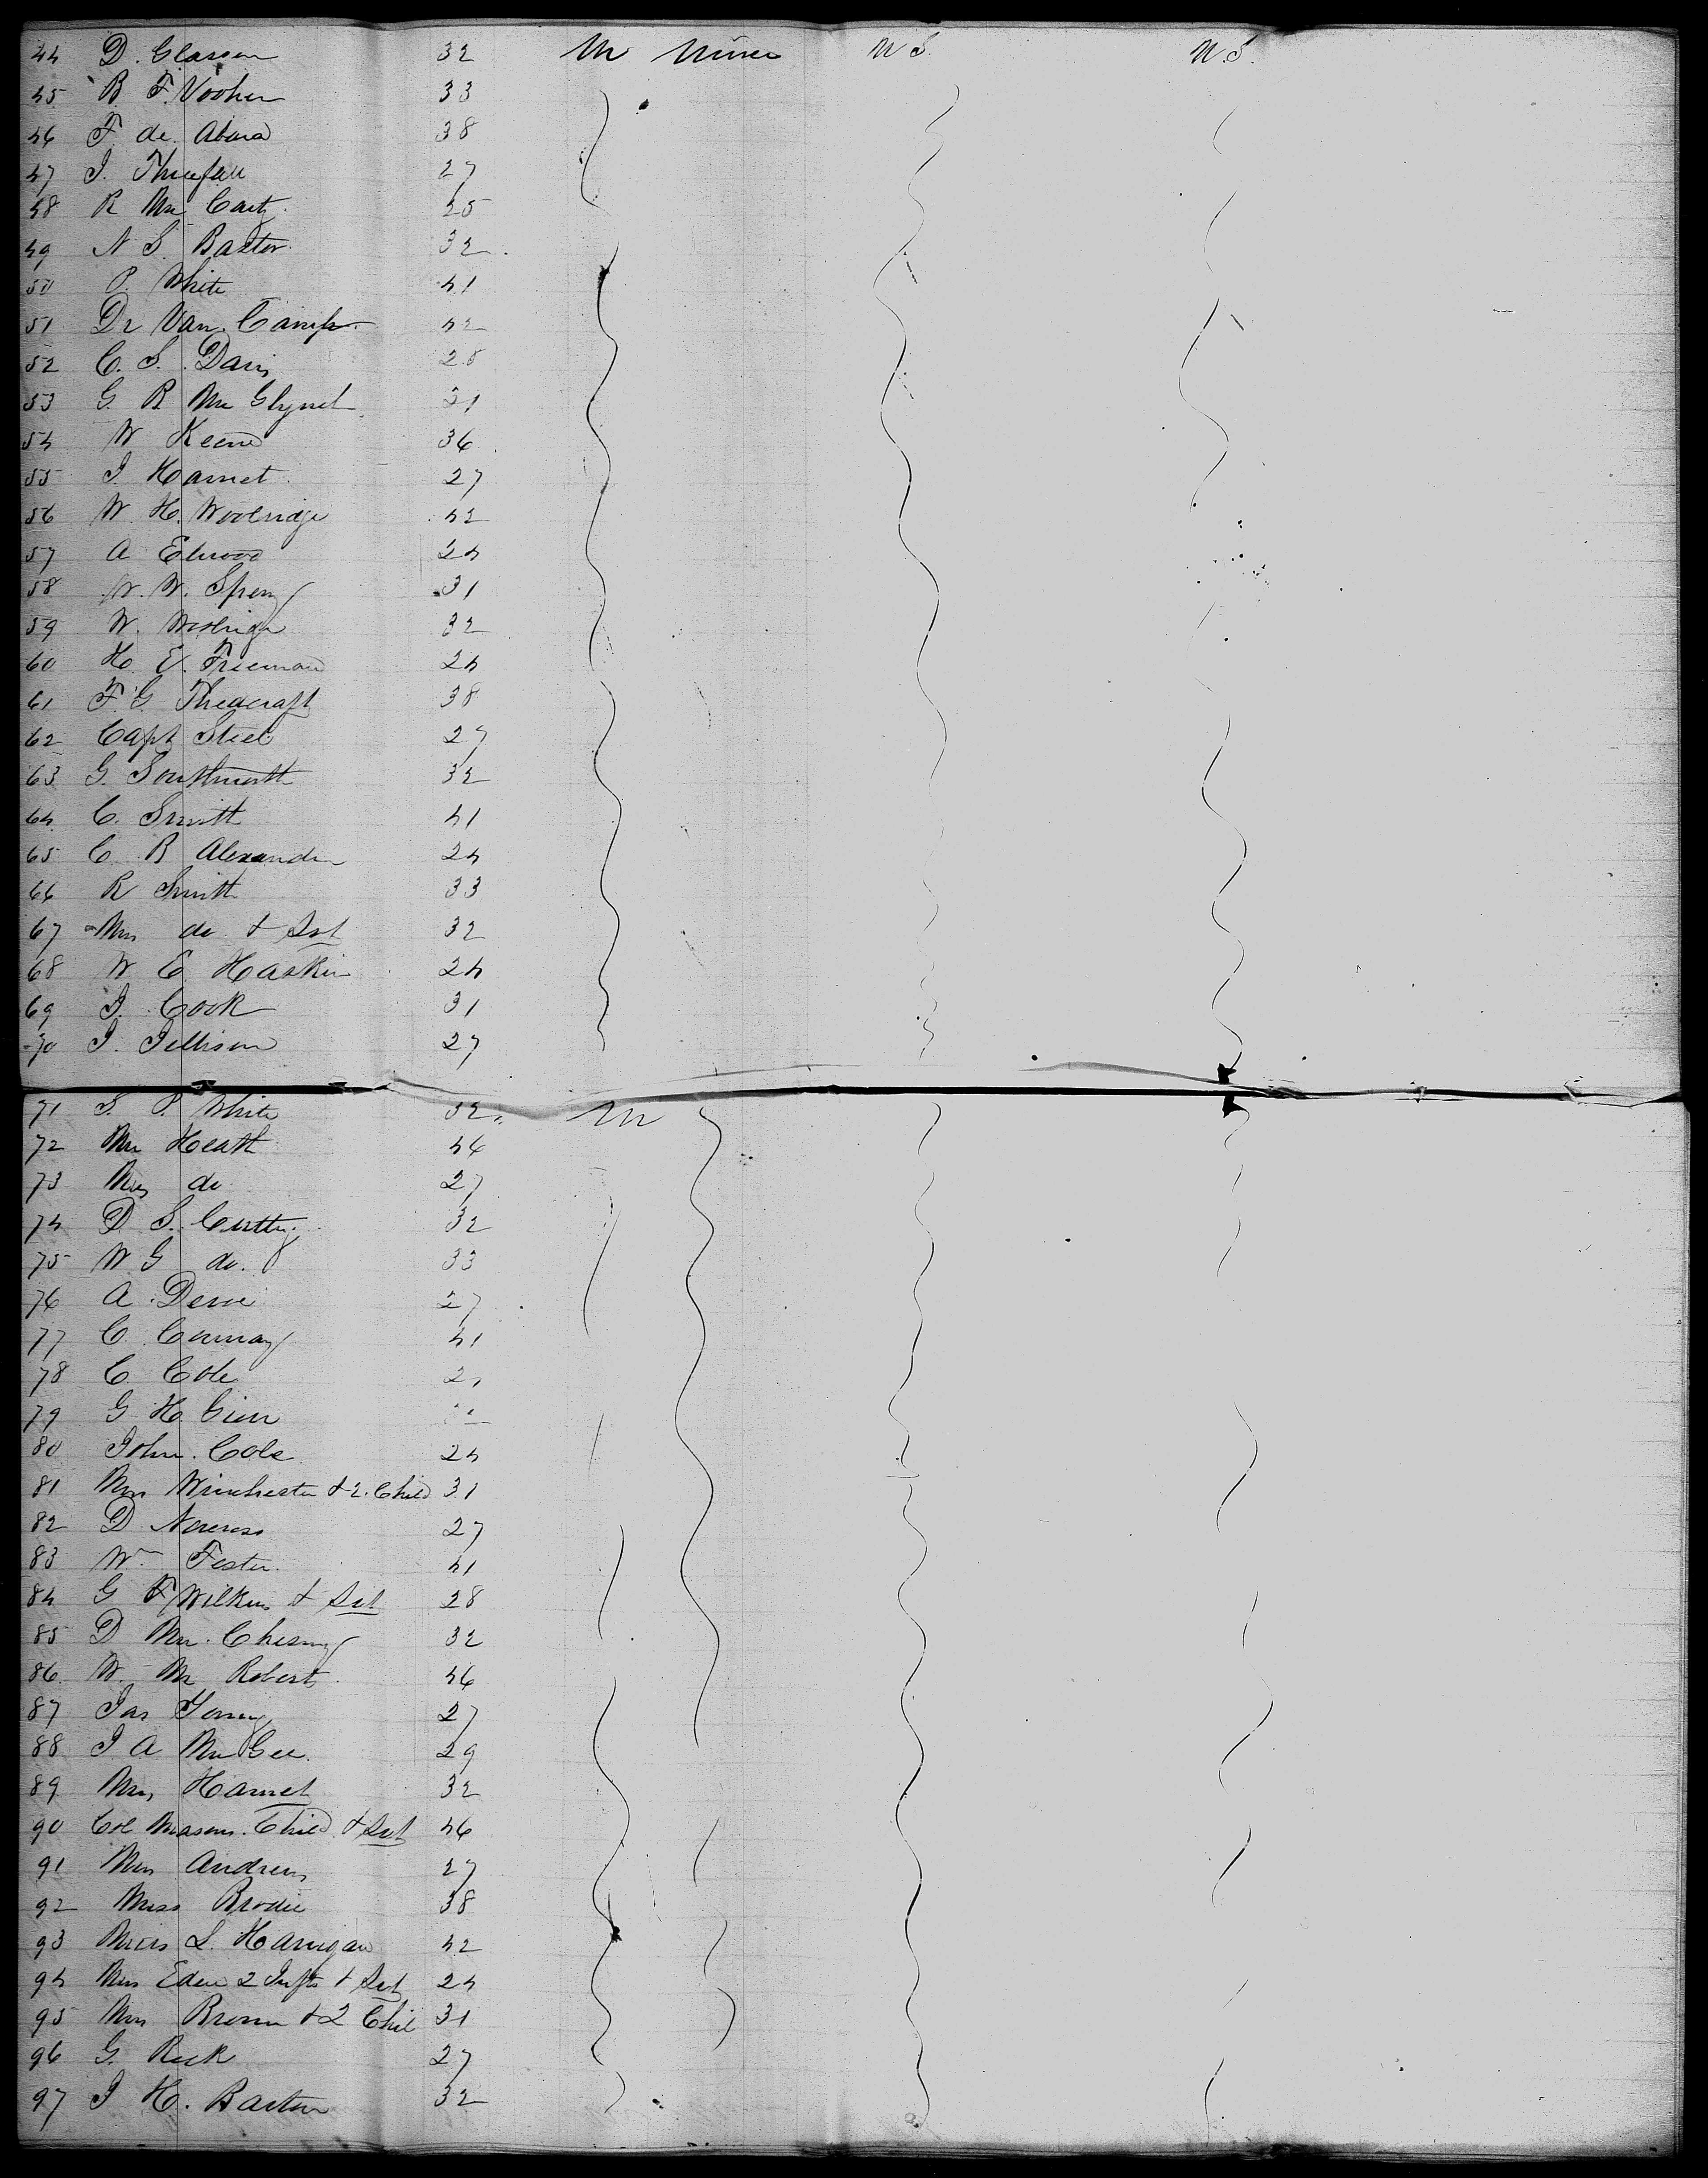 44 D. Glasson 32 M Miner U S. U.S.
45 B F. Vooher 33
46 F de Abara 38
47 J. Threfall 27
48 R Mc Carty 25
49 N S. Baxter 32
50 P. White 41
51 Dr Van Camp 42
52 C. S. Davis 28
53 G. R Mc Glynch 21
54 W Keene 36
55 J Hamet 27
56 W. H. Woolridge 42
57 A Elwood 24
58 W. W. Spery 31
59 W. Woolridge 32
60 H. E. Freeman 24
61 F. G Thredcraft 38
62 Capt Steel 27
63 G. Southworth 32
64 C. Smith 41
65 C. R Alexander 24
66 R Smith 33
67 Mrs do & Svt 32
68 W C Haskin 24
69 J. Cook 31
70 J. Jellison 27
71 S. P. White 32 M
72 Mr Heath 46
73 Mrs do 27
74 D S. Cutting 32
75 W G do. 33
76 A. Derve 27
77 C. Conway 41
78 C. Cole
79 G H.
80 John Cole 24
81 Mrs Winchester & 2. Child 31
82 D Norcross 27
83 Wm Foster 41
84 G F Wilkins & Svt 28
85 D Mc Chesny 32
86 W. M Robert 46
87 Jas Young 27
88 J A McGee 29
89 Mrs Hamet 32
90 Col Masons Child & Svt 46
91 Mrs Andrews 27
92 Miss Brodie 38
93 Miss L. Harrigan 42
94 Mrs Eden 2 Infts & Svt 24
95 Mrs Brown & 2 Chil 31
96 G. Rick 27
97 J H. Barton 32